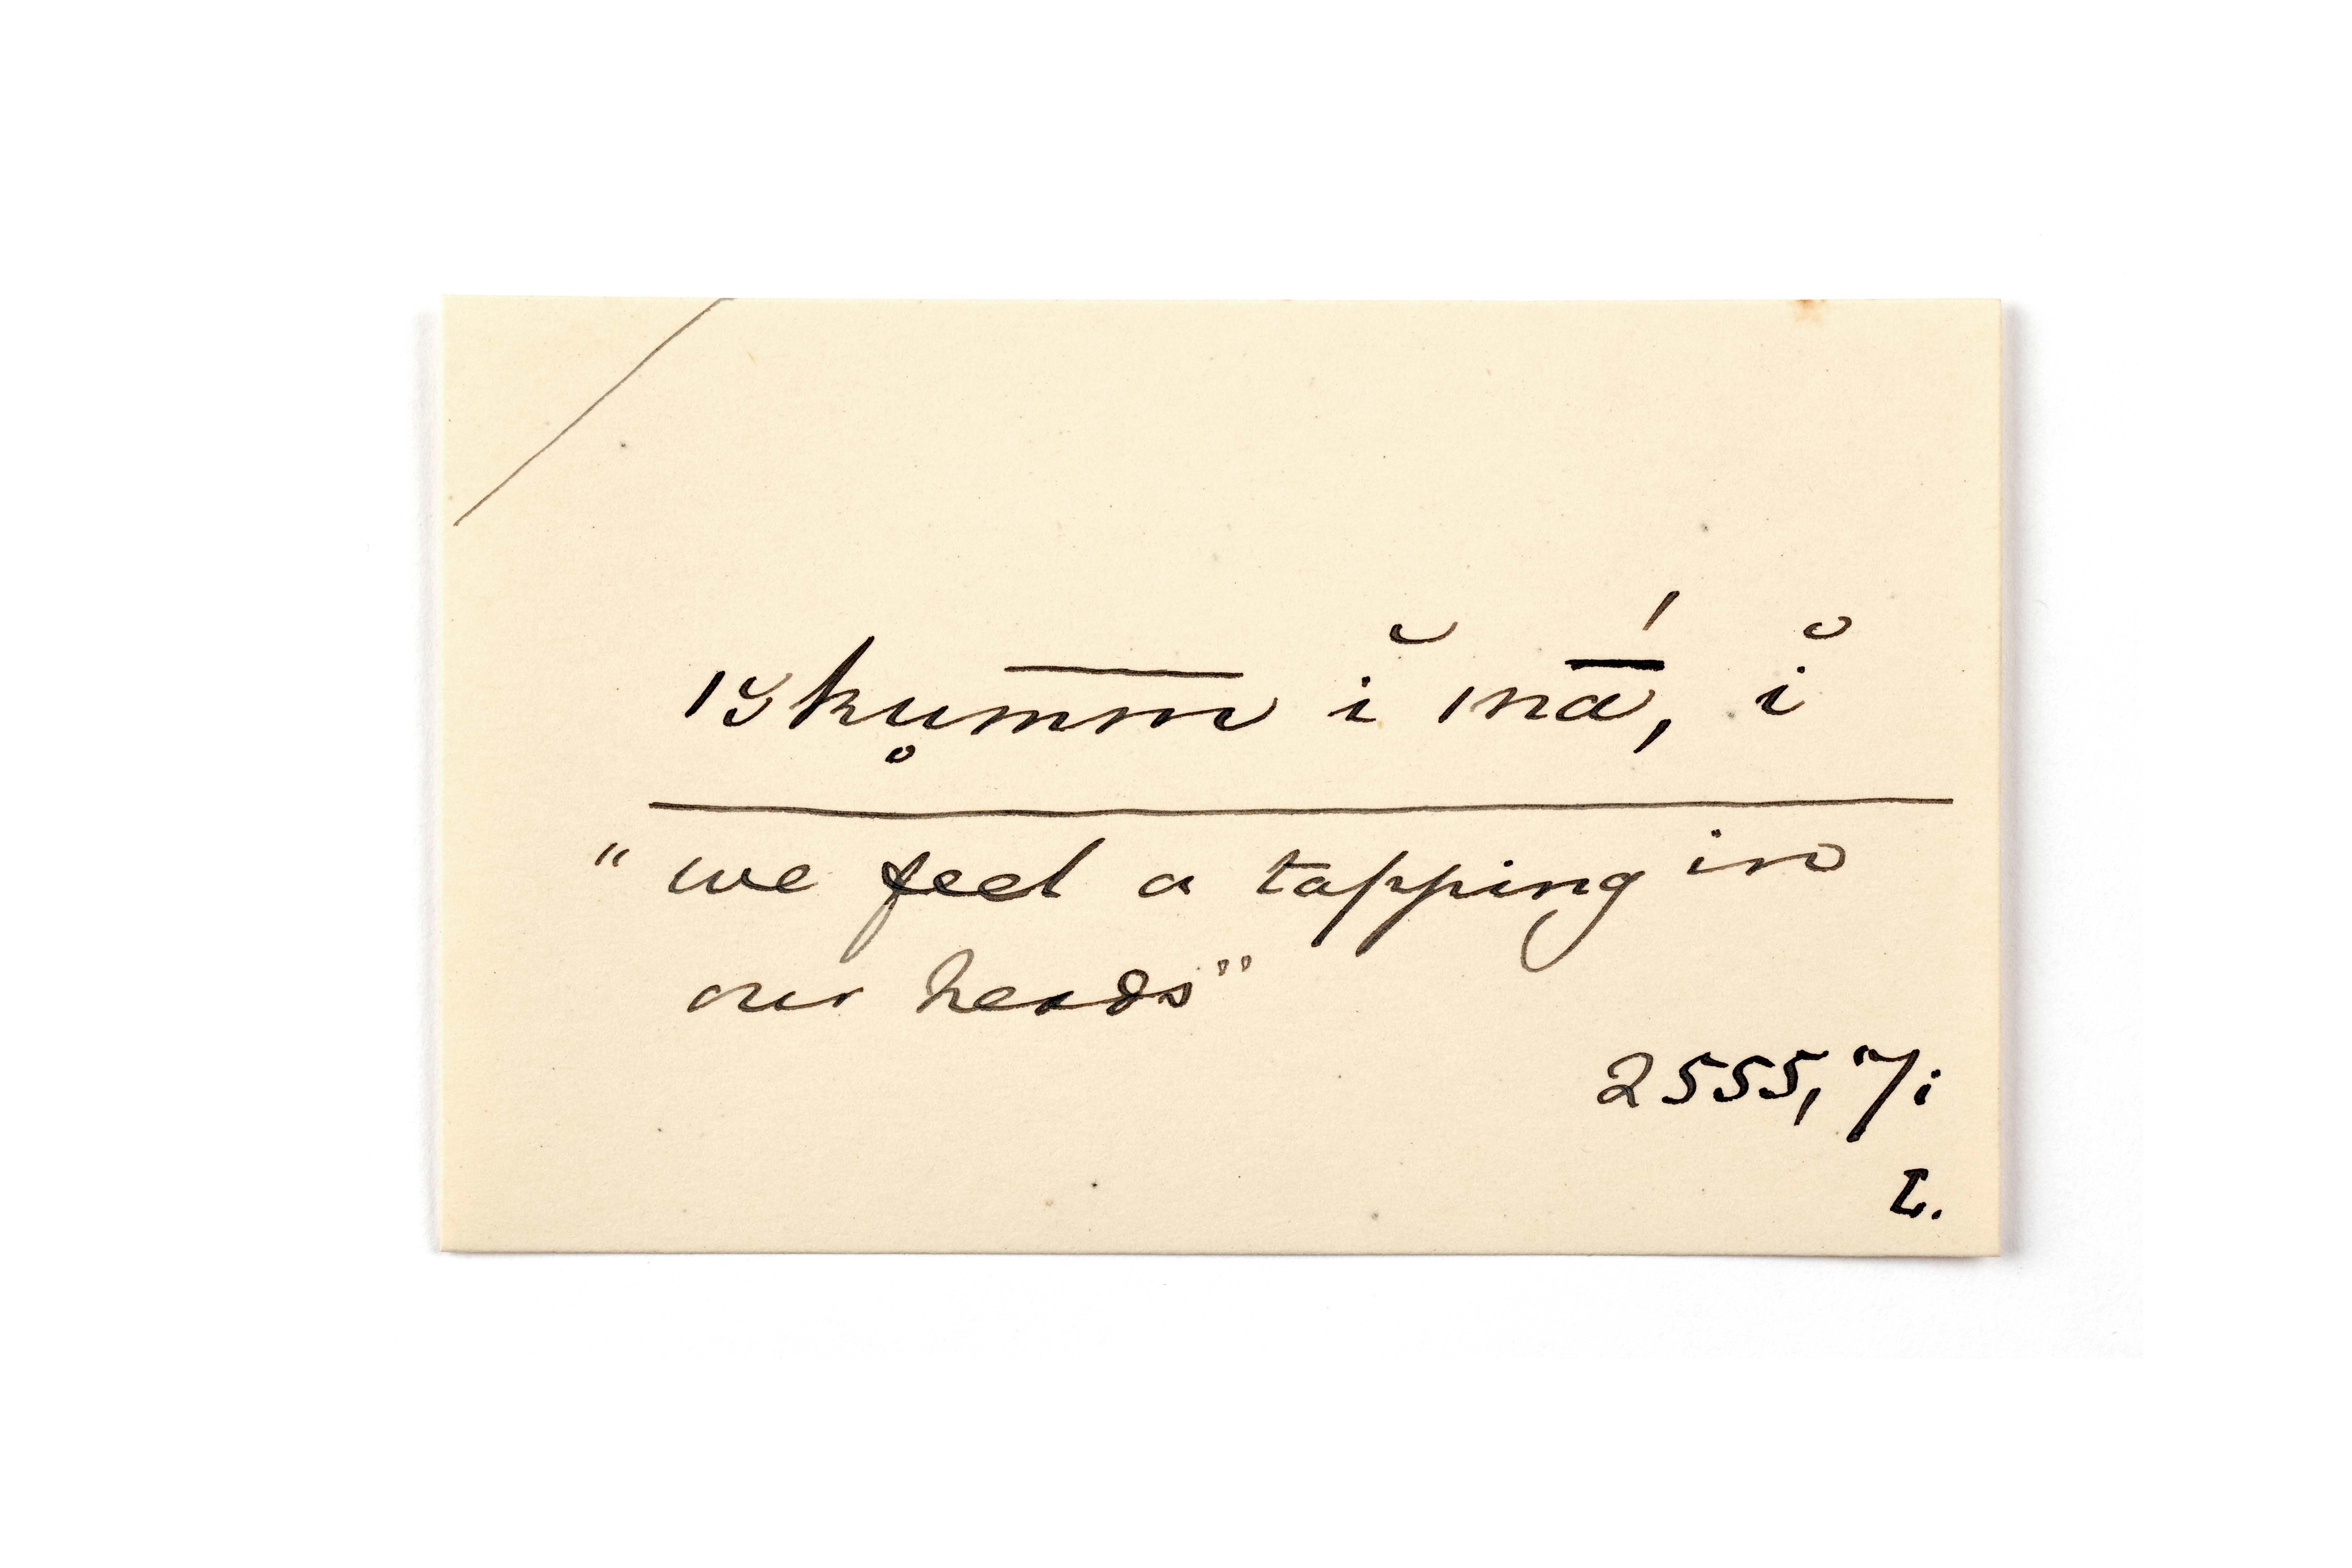 ǀɣku̥m̅m̅ ĭ ǀnā́, ĭ
"we feel a tapping in
our heads"
2555, 7/i
L.